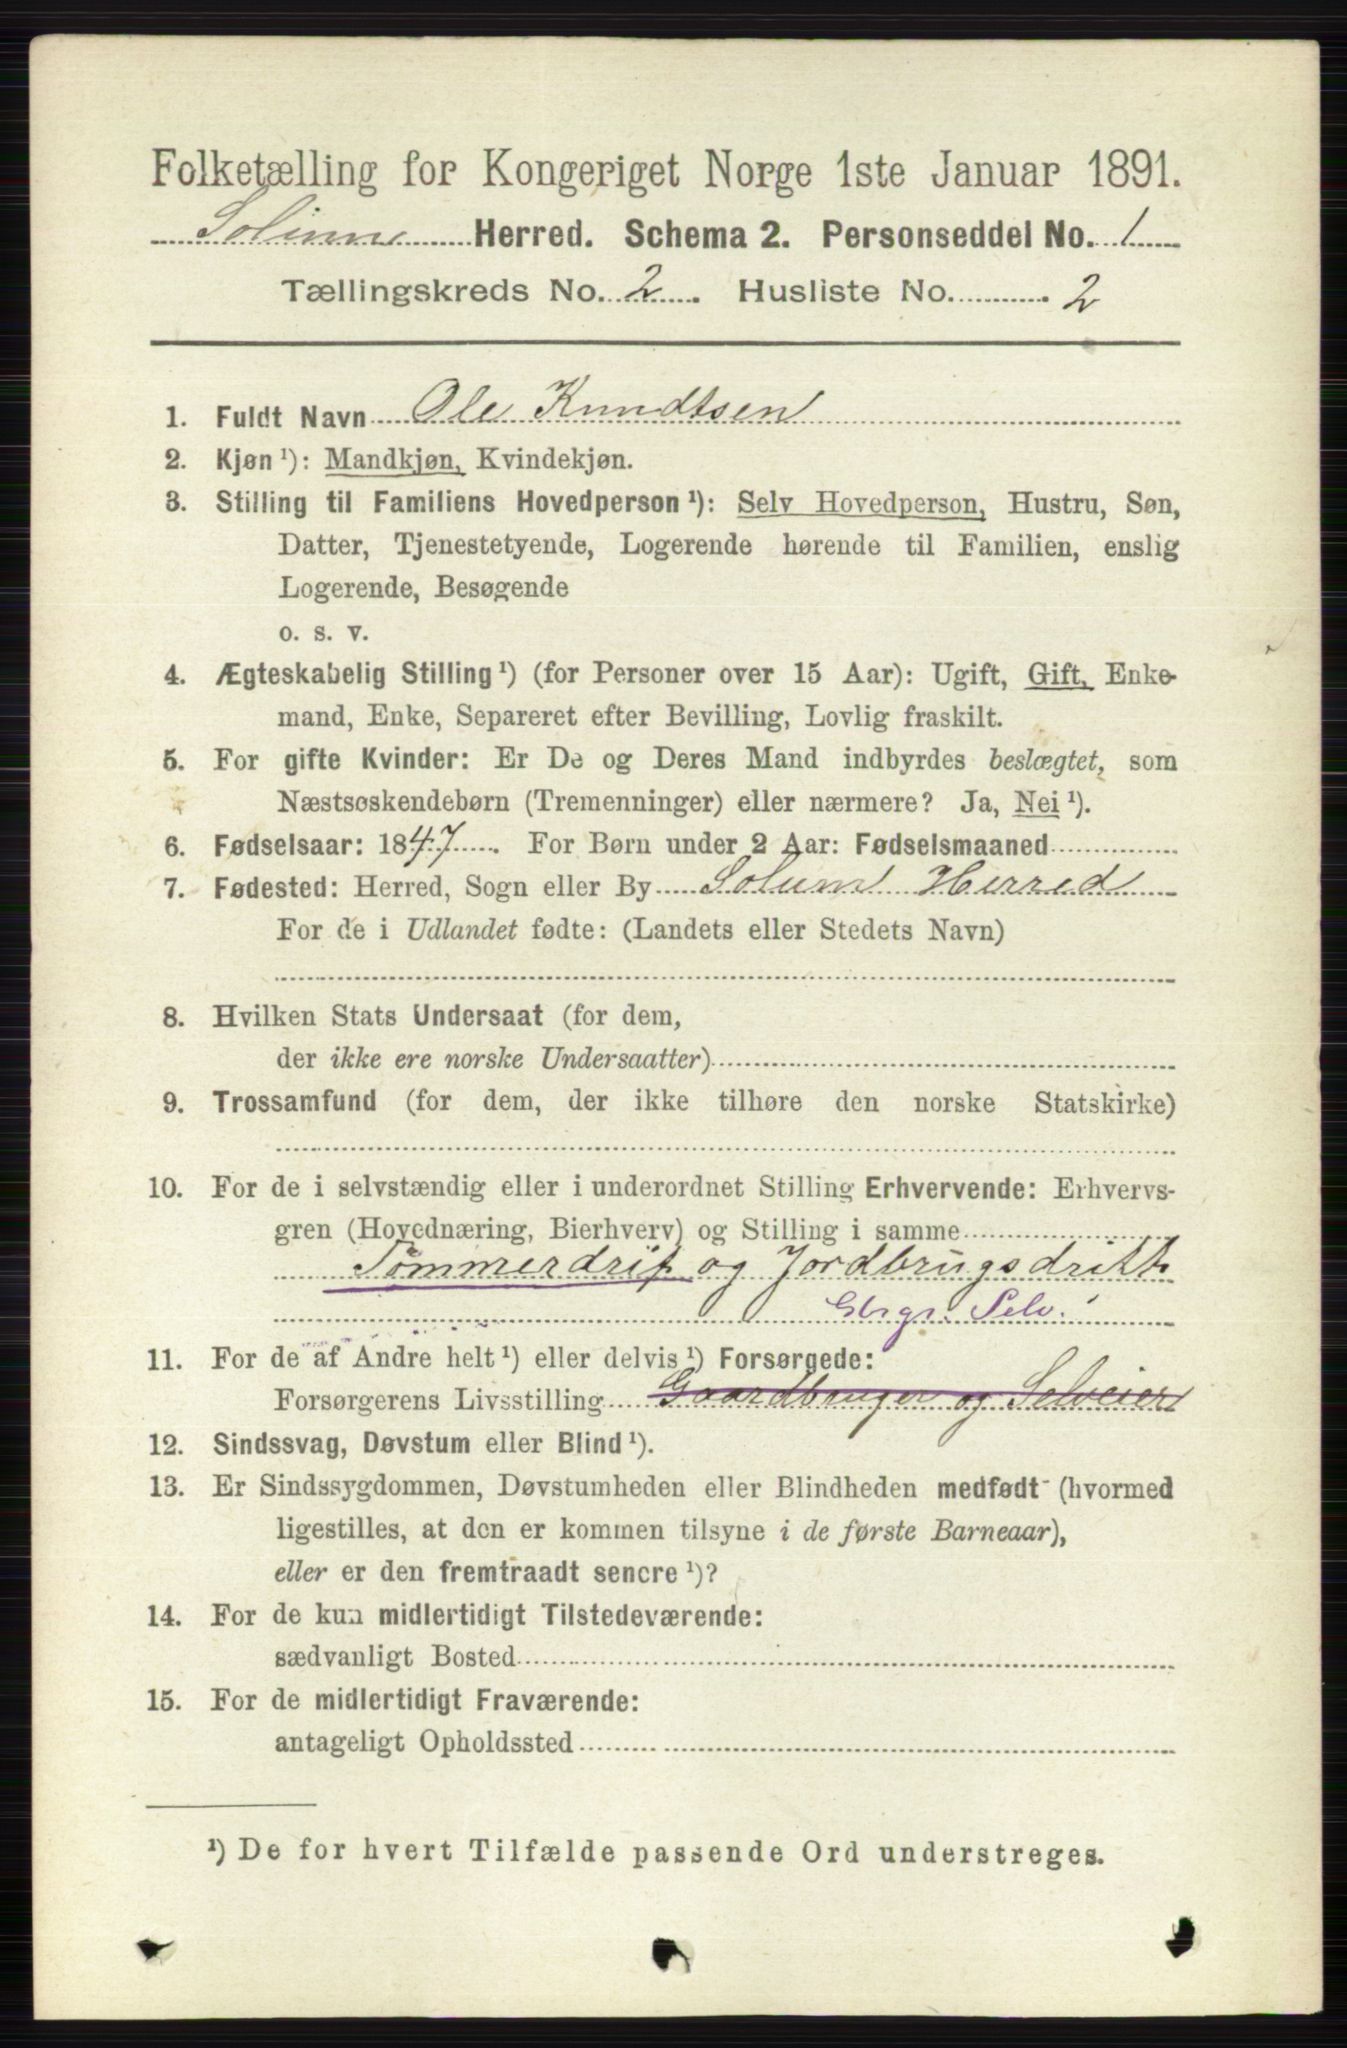 Folketælling for Kongeriget Norge 1ste Januar 1891.
Solum Herred. Schema 2. Personseddel No. 1
Tællingskreds No. 2. Husliste No. 2
1. Fuldt Navn Ole Knudtsen
2. Kjøn ¹): Mandkjøn, Kvindekjøn.
3. Stilling til Familiens Hovedperson ¹): Selv Hovedperson, Hustru, Søn,
Datter, Tjenestetyende, Logerende hørende til Familien, enslig
Logerende, Besøgende
o. s. v.
4. Ægteskabelig Stilling ¹) (for Personer over 15 Aar): Ugift, Gift, Enke-
mand, Enke, Separeret efter Bevilling, Lovlig fraskilt.
5. For gifte Kvinder: Er De og Deres Mand indbyrdes beslægtet, som
Næstsøskendebørn (Tremenninger) eller nærmere? Ja, Nei ¹).
6. Fødselsaar: 1847. For Børn under 2 Aar: Fødselsmaaned
7. Fødested: Herred, Sogn eller By Solum Herred
For de i Udlandet fødte: (Landets eller Stedets Navn)
8. Hvilken Stats Undersaat (for dem,
der ikke ere norske Undersaatter)
9. Trossamfund (for dem, der ikke tilhøre den norske Statskirke)
10. For de i selvstændig eller i underordnet Stilling Erhvervende: Erhvervs-
gren (Hovednæring, Bierhverv) og Stilling i samme
Tømmerdrift og Jordbrugsdrift
Gbrgr. Selv.
11. For de af Andre helt ¹) eller delvis ¹) Forsørgede:
Forsørgerens Livsstilling Gaardbruger og Selveier
12. Sindssvag, Døvstum eller Blind ¹).
13. Er Sindssygdommen, Døvstumheden eller Blindheden medfødt (hvormed
ligestilles, at den er kommen tilsyne i de første Barneaar),
eller er den fremtraadt senere ¹)?
14. For de kun midlertidigt Tilstedeværende:
sædvanligt Bosted
15. For de midlertidigt Fraværende:
antageligt Opholdssted
¹) De for hvert Tilfælde passende Ord understreges.